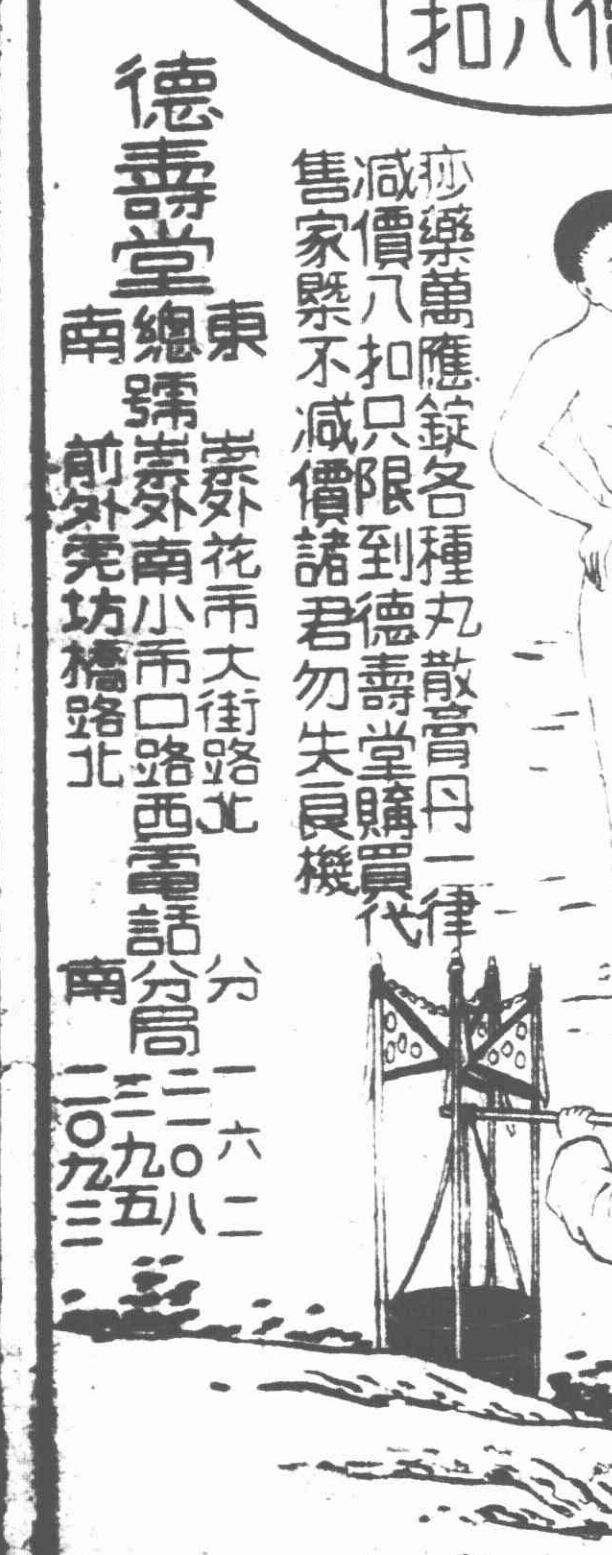 八扣
痧藥萬應錠各種丸散膏丹一律
减價八扣只限到德壽堂購買代
售家槩不减價諸君勿失良機
德壽堂
東 崇外花市大街路北 分 一六二
總號崇外南小市口路西電話分局 二一〇八 三九五
南 前外虎坊橋路北 南 二〇九三